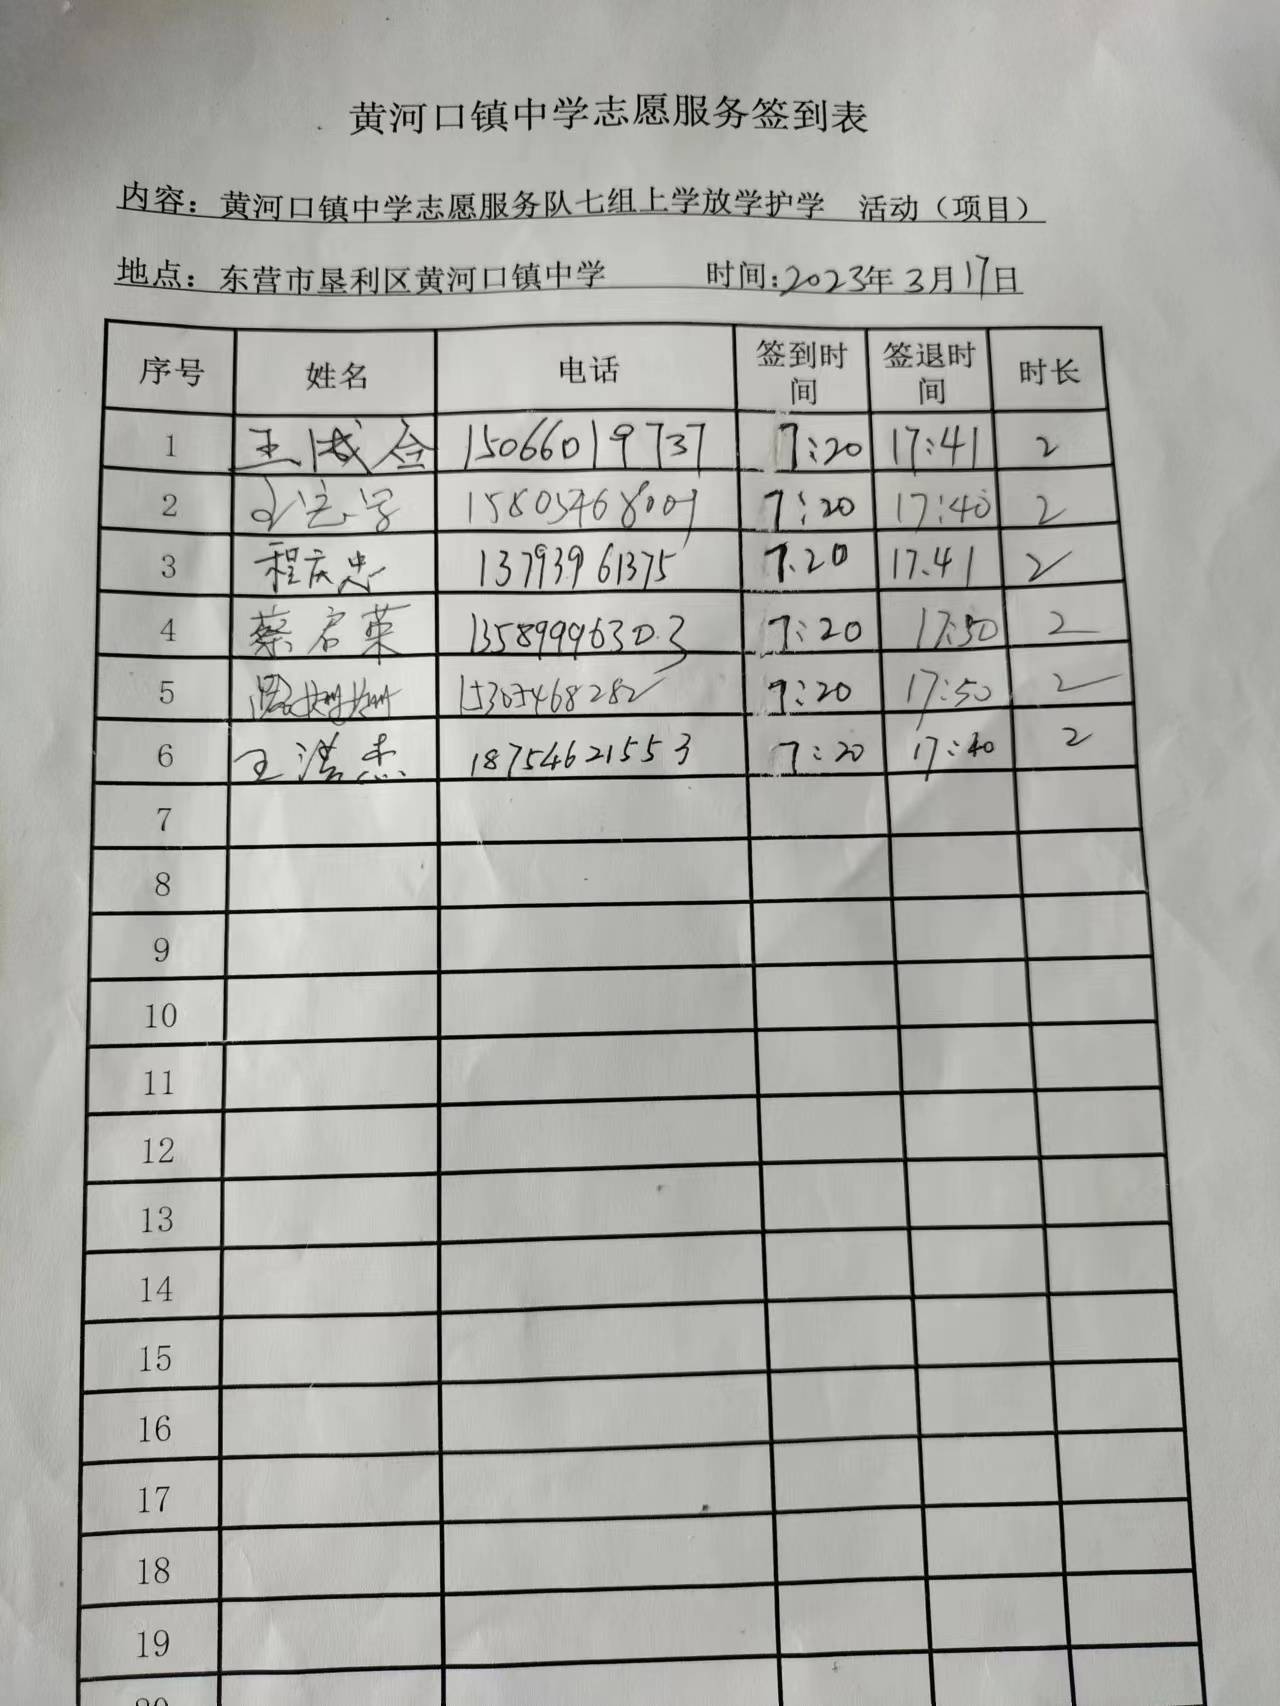 黄河口镇中学志愿服务签到表
内容：黄河口镇中学志愿服务队七组上学放学护学 活动（项目）
地点：东营市垦利区黄河口镇中学 时间:2023年3月17日
序号 姓名 电话 签到时间 签退时间 时长
1 王成全 15066019737 7:20 17:41 2
2 7:20 17:40 2
3 程庆忠 13793961375 7.20 17.41 2
4 蔡启荣 13589996303 7:20 17:50 2
5 路姗姗 15305468282 7:20 17:50 2
6 王浩杰 18754621553 7:20 17:40 2
7
8
9
10
11
12
13
14
15
16
17
18
19
20